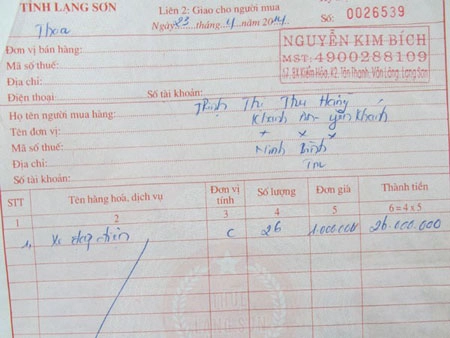 TỈNH LẠNG SƠN
Liên 2: Giao cho người mua
Ngày 23 tháng 4 năm 2014
Số: 0026539
Thoa
Đơn vị bán hàng:
Mã số thuế:
Địa chỉ:
Điện thoại:
Số tài khoản:
NGUYỄN KIM BÍCH
MST: 4900288109
17, BX Kiểm Hóa, K2, Tân Thanh, Văn Lãng, Lạng Sơn
Họ tên người mua hàng: Trịnh Thị Thu Hằng
Tên đơn vị: Khánh An - Yên Khánh
Mã số thuế: x x x
Địa chỉ: Ninh Bình
Số tài khoản: TM
STT Tên hàng hoá, dịch vụ Đơn vị tính Số lượng Đơn giá Thành tiền
1 2 3 4 5 6 = 4 x 5
1, Xe đạp điện C 26 1.000.000 26.000.000